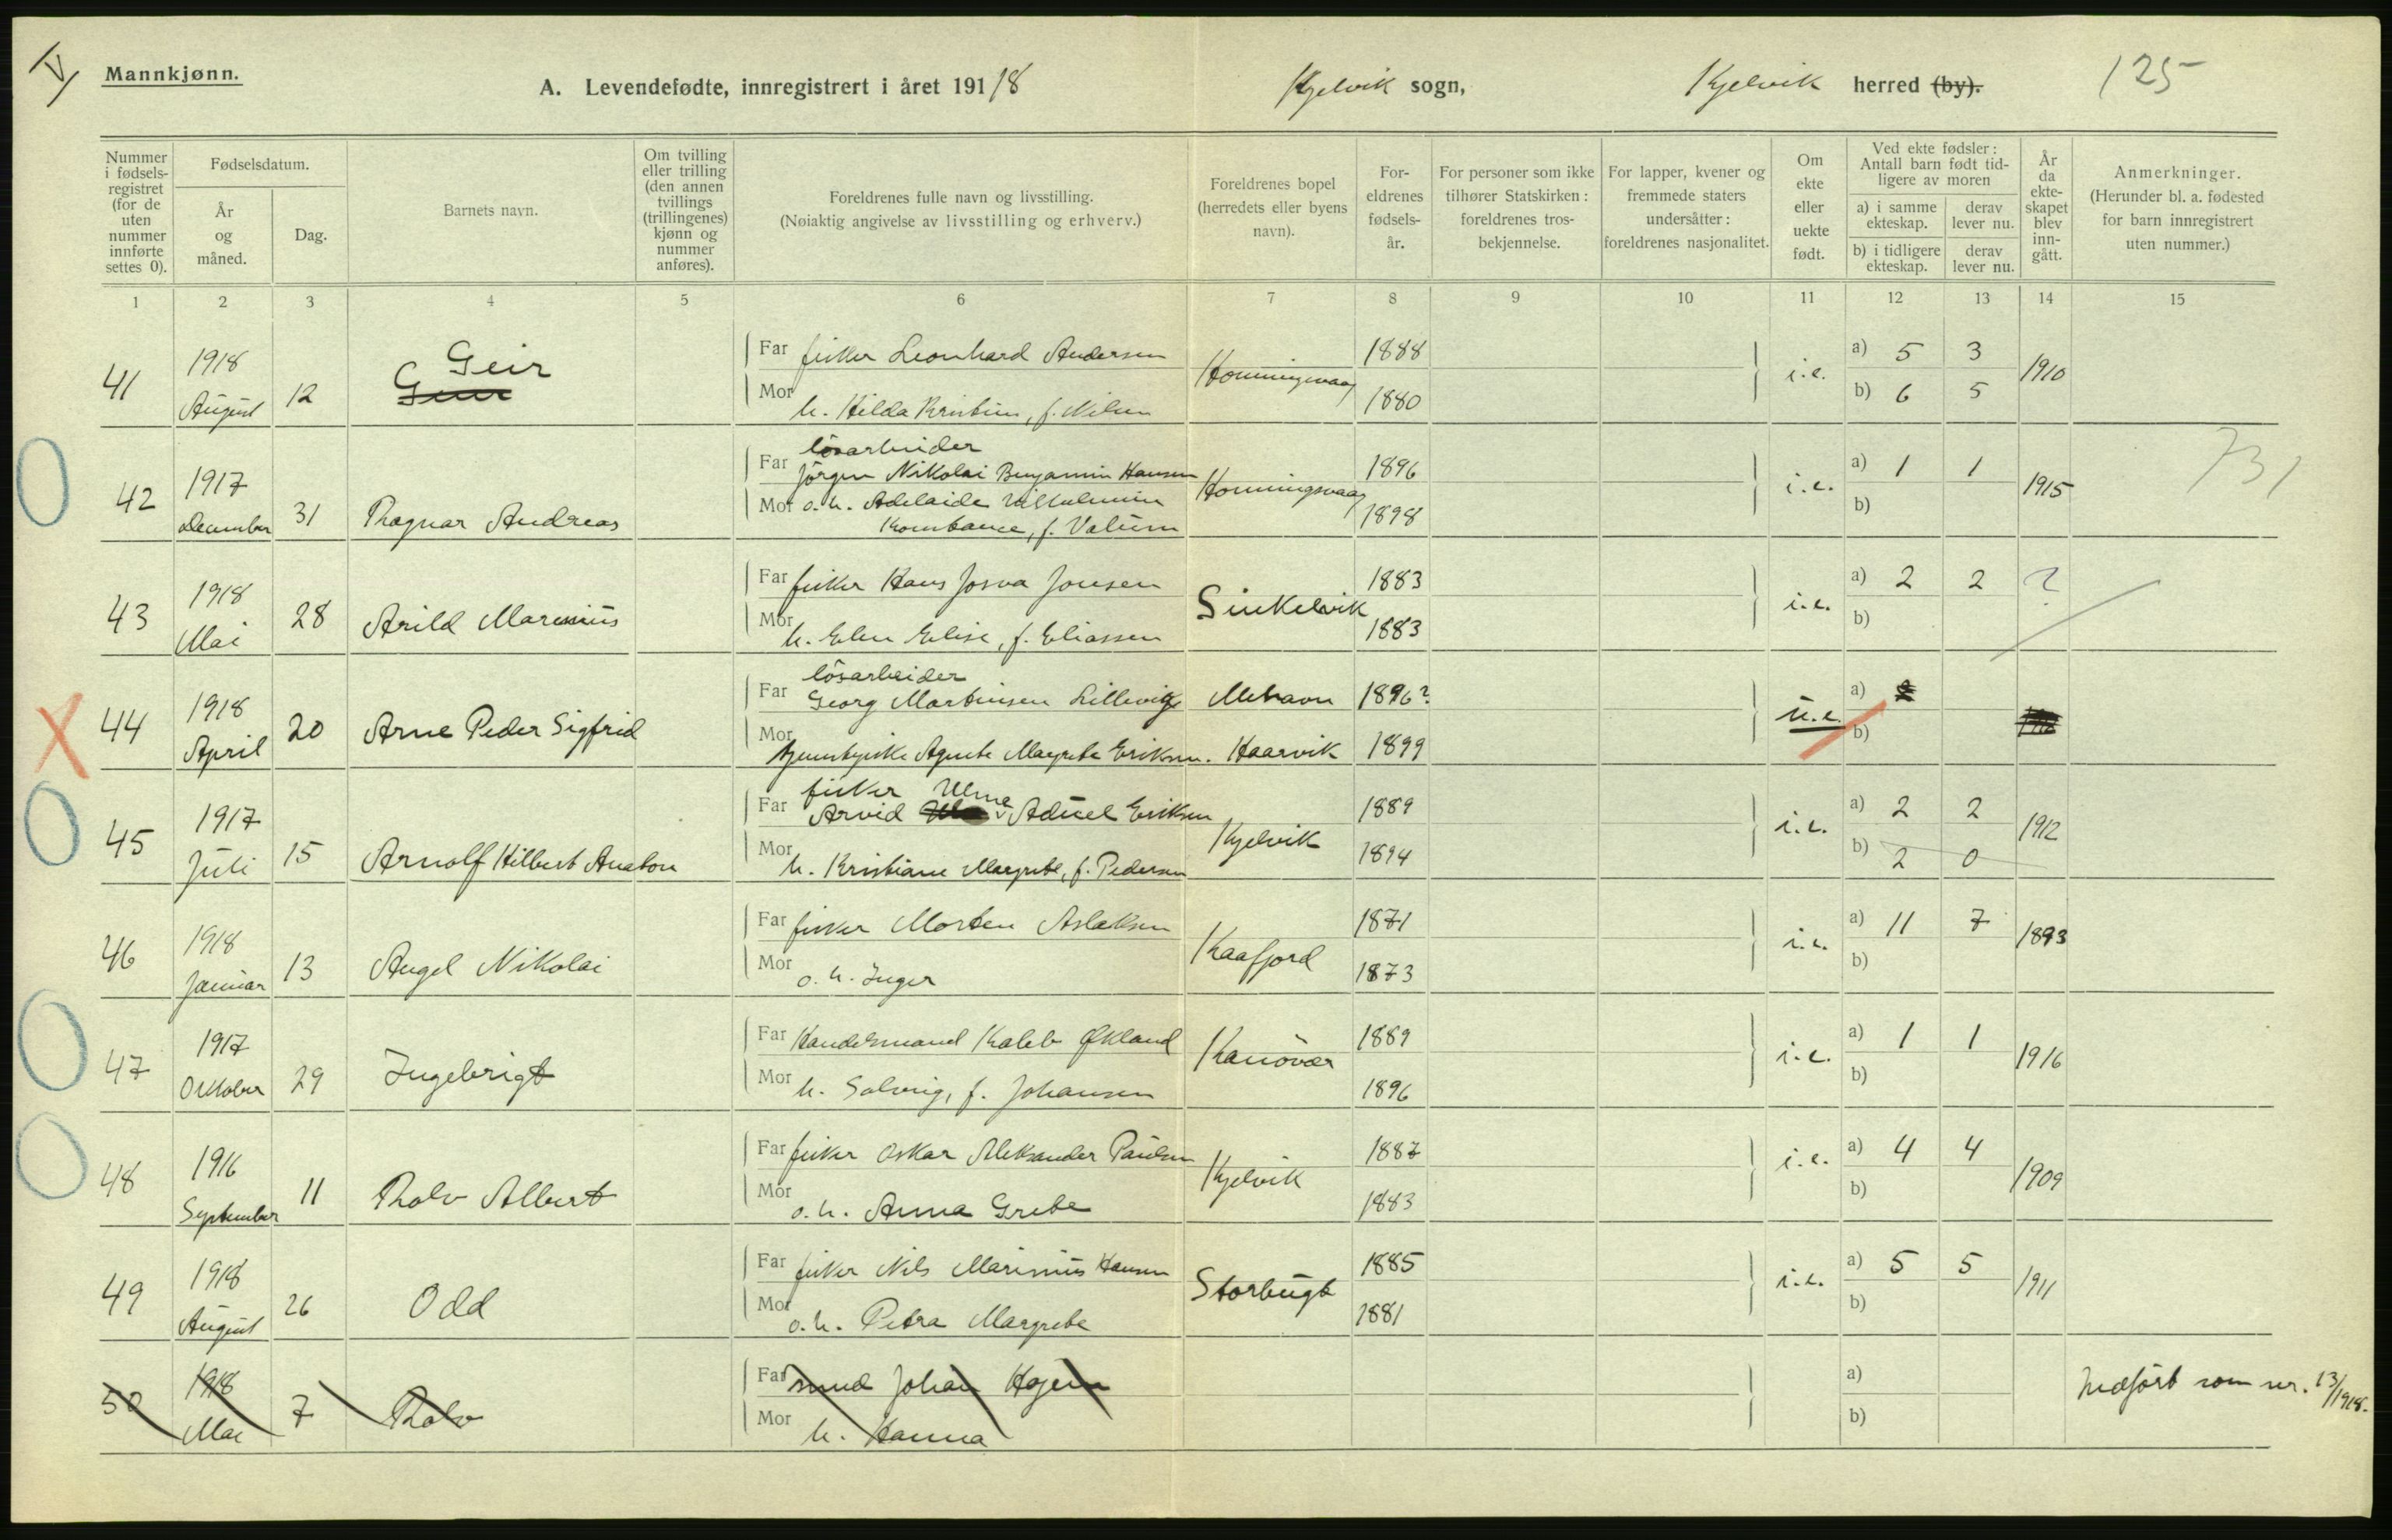 IV
Mannkjønn.
A. Levendefødte, innregistrert i året 191 18
Kjelvik sogn,
Kjelvik herred (by).
125
Nummer i fødsels-registret (for de uten nummer innførte settes 0).
Fødselsdatum.
År og måned.
Dag.
Barnets navn.
Om tvilling eller trilling (den annen tvillings (trillingenes) kjønn og nummer anføres).
Foreldrenes fulle navn og livsstilling.
(Nøiaktig angivelse av livsstilling og erhverv.)
Foreldrenes bopel (herredets eller byens navn).
For-eldrenes fødsels-år.
For personer som ikke tilhører Statskirken: foreldrenes tros-bekjennelse.
For lapper, kvener og fremmede staters undersåtter: foreldrenes nasjonalitet.
Om ekte eller uekte født.
Ved ekte fødsler: Antall barn født tid-ligere av moren
a) i samme ekteskap.
derav lever nu.
b) i tidligere ekteskap.
derav lever nu.
År da ekte-skapet blev inn-gått.
Anmerkninger.
(Herunder bl. a. fødested for barn innregistrert uten nummer.)
1 2 3 4 5 6 7 8 9 10 11 12 13 14 15
41 1918 August 12 Geir
Far fisker Leonhard Andersen 1888
Mor h. Hilda Kristine, f. Nilsen 1880
Honningsvaag i.e. a) 5 3 b) 6 5 1910
42 1917 December 31 Ragnar Andreas
Far lösarbeider Jörgen Nikolai Benjamin Hansen 1896
Mor o. h. Adelaide Vilhelmine Konstance, f. Valum 1898
Honningsvaag i.e. a) 1 1 b) 1915
731
43 1918 Mai 28 Arild Marenius
Far fisker Hans Josva Jonsen 1883
Mor h. Elen Elise, f. Eliassen 1883
Sinkelvik i.e. a) 2 2 b) ?
44 1918 April 20 Arne Peder Sigfrid
Far lösarbeider Georg Martinsen Lillevig Mehavn 1896?
Mor hjemstyrke Agnete Margrete Eriksen. Haarvik 1899
u.e. a) b)
45 1917 Juli 15 Arnolf Hilbert Anaton
Far fisker Arvid Ulme Aduel Eriksen 1889
Mor h. Kristiane Margrete, f. Pedersen 1894
Kjelvik i.e. a) 2 2 b) 2 0 1912
46 1918 Januar 13 Angel Nikolai
Far fisker Morten Aslaksen 1871
Mor o. h. Inger 1873
Kaafjord i.e. a) 11 7 b) 1893
47 1917 Oktober 29 Ingebrigt
Far Handelsmand Kaleb Økland 1889
Mor h. Solveig, f. Johansen 1896
Kamövær i.e. a) 1 1 b) 1916
48 1916 September 11 Rolv Albert
Far fisker Oskar Aleksander Paulsen 1887
Mor o. h. Anna Grete 1883
Kjelvik i.e. a) 4 4 b) 1909
49 1918 August 26 Odd
Far fisker Nils Marinius Hansen 1885
Mor o. h. Petra Margrete 1881
Storbugt i.e. a) 5 5 b) 1911
50 1918 Mai 7 Rolv
Far smed Johan Hagen
Mor h. Hanna
a) b)
Indfört som nr. 13/1918.